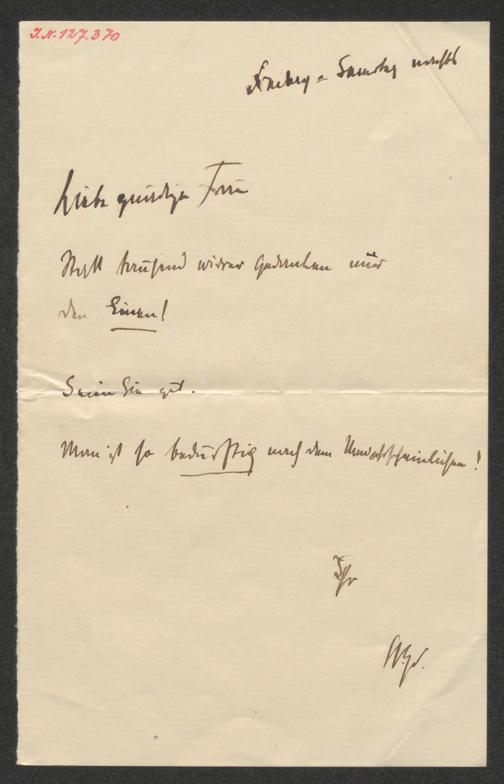 I.N. 127.370
Samstag nachts
Liebe gnädige Frau
Statt tausend wirrer Gedanken nur
den Einen!
Seien Sie gut.
Man ist so bedürftig nach dem Unwahrscheinlichen!
Ihr